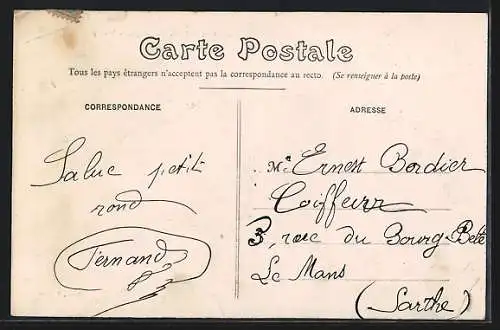 Carte Postale
Tous les pays étrangers n'acceptent pas la correspondance au recto. (Se renseigner à la poste)
CORRESPONDANCE
ADRESSE
Salue petit
rond
Fernand
Mr Ernest Bordier
Coiffeur
3, rue du Bourg-Belé
Le Mans
(Sarthe)